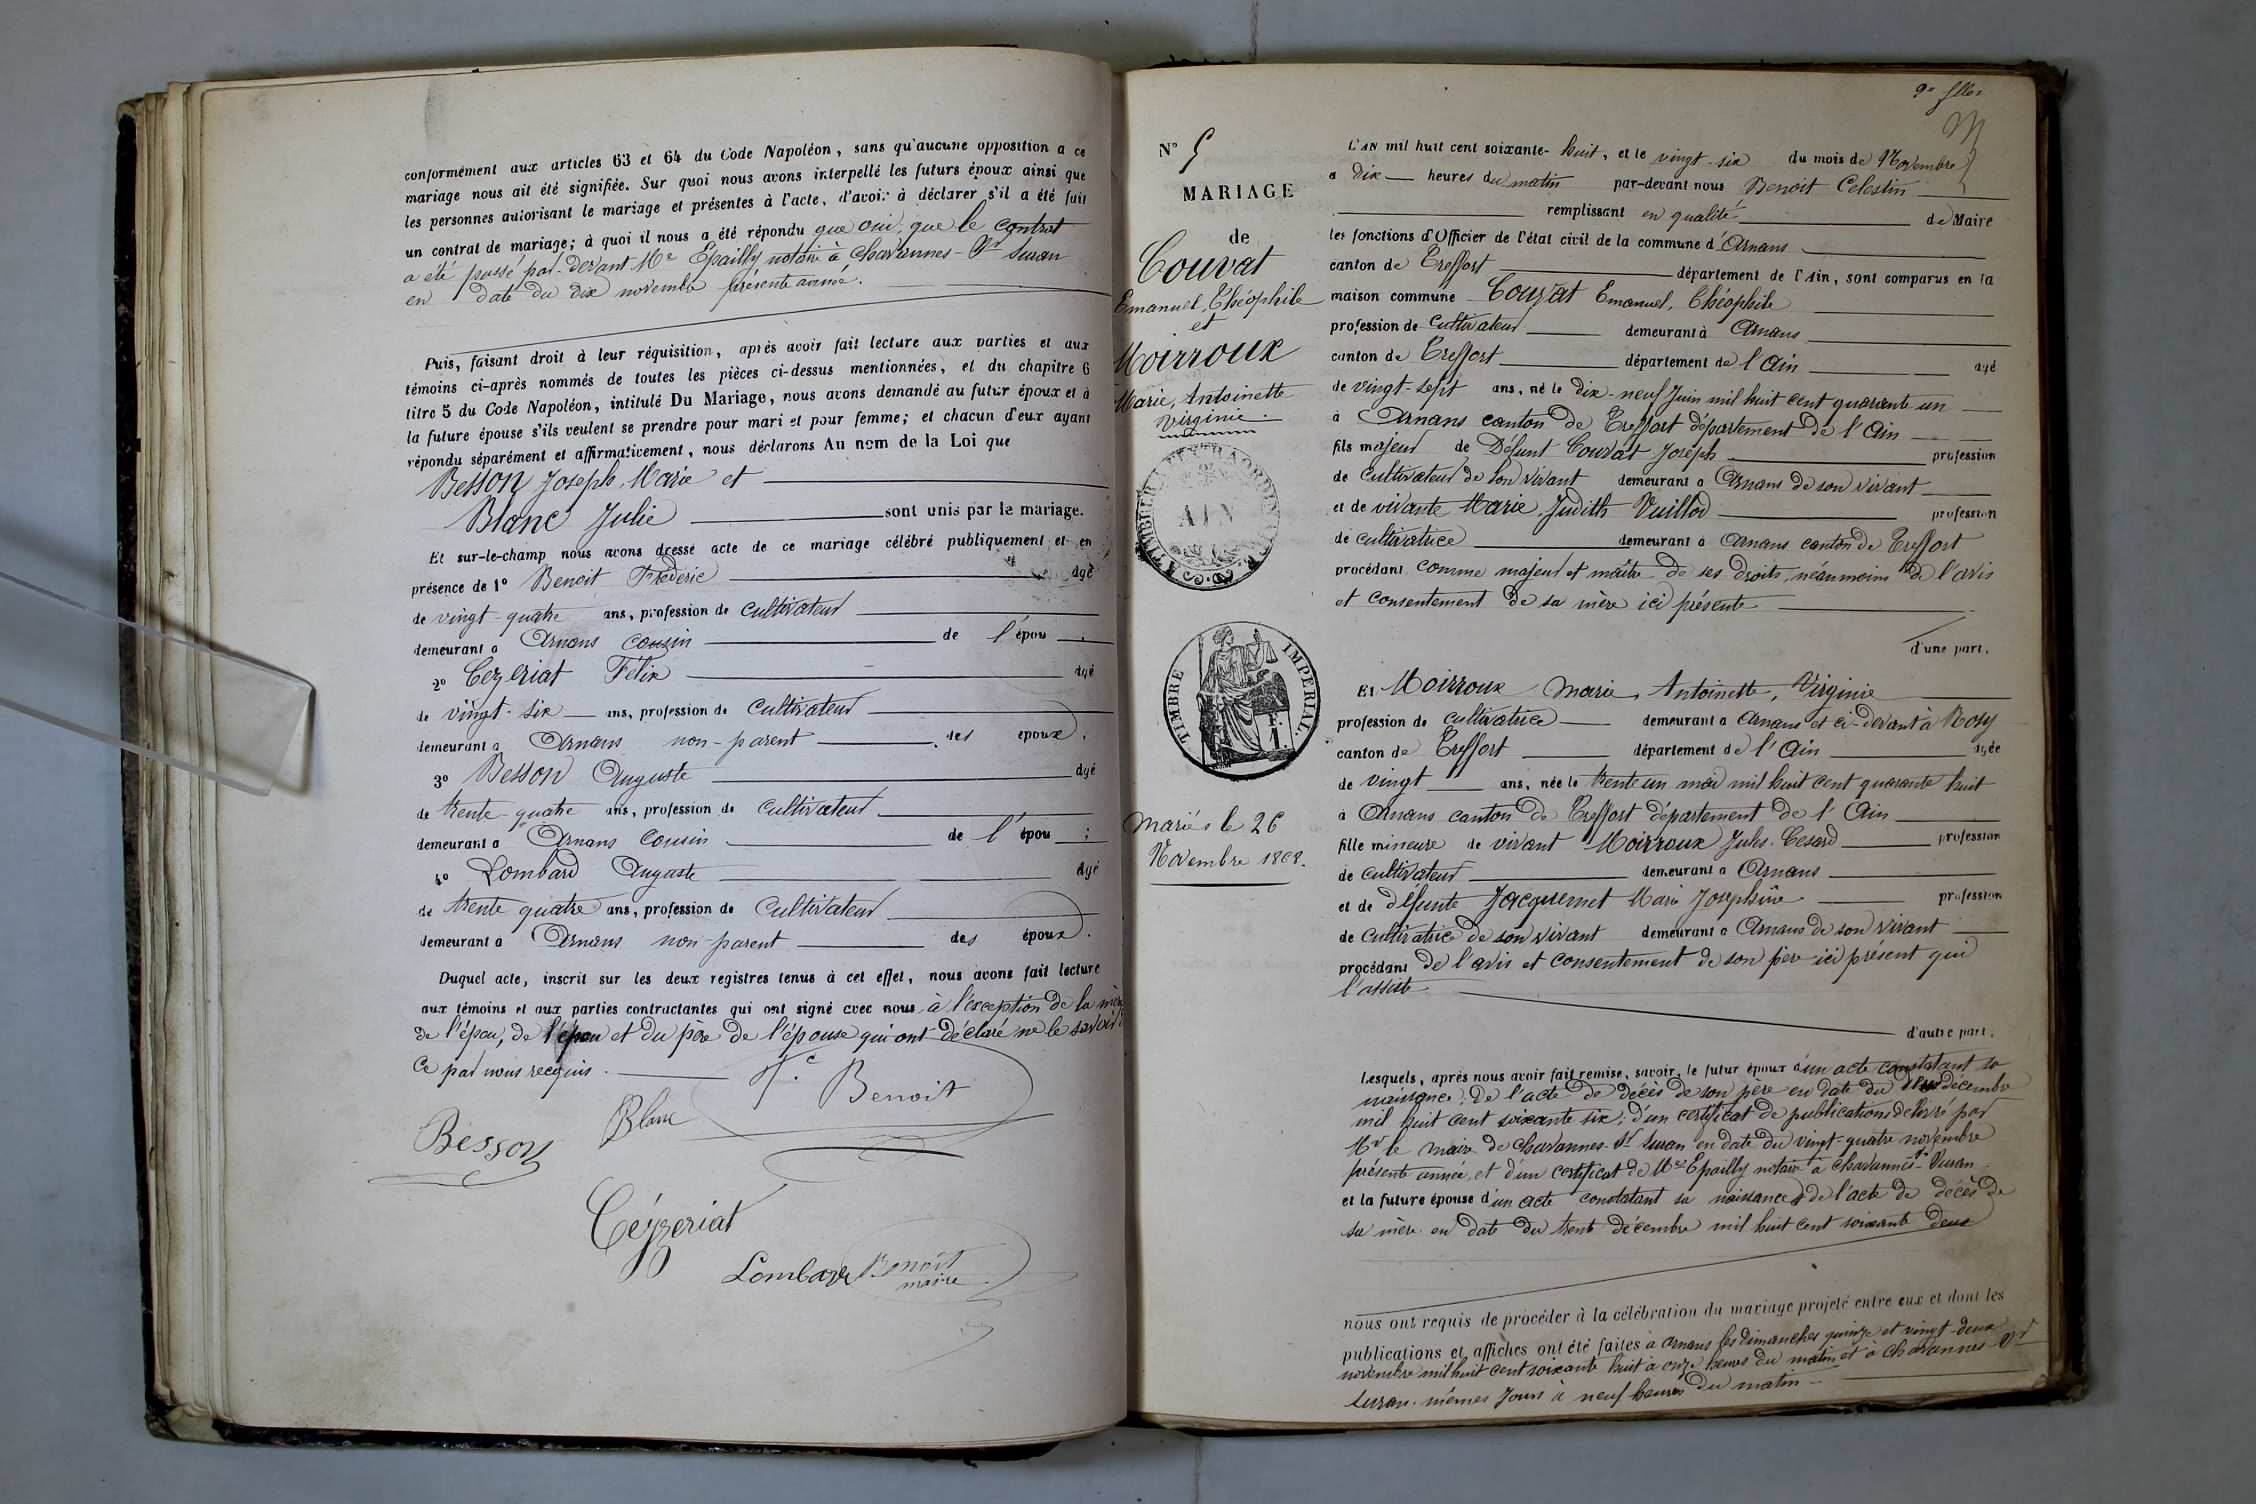 conformément aux articles 63 et 64 du Code Napoléon, sans qu'aucune opposition a ce
mariage nous ait été signifiée. Sur quoi nous avons interpellé les futurs époux ainsi que
les personnes autorisant le mariage et présentes à l'acte, d'avoir à déclarer s'il a été fait
un contrat de mariage; à quoi il nous a été répondu que oui, que le contrat
a été passé par-devant Me Epailly notaire à Chavannes-Sr Suran
en date du dix novembre présente année.
Puis, faisant droit à leur réquisition, après avoir fait lecture aux parties et aux
témoins ci-après nommés de toutes les pièces ci-dessus mentionnées, et du chapitre 6
titre 5 du Code Napoléon, intitulé Du Mariage, nous avons demandé au futur époux et à
la future épouse s'ils veulent se prendre pour mari et pour femme; et chacun d'eux ayant
répondu séparément et affirmativement, nous déclarons Au nom de la Loi que
Besson Joseph, Marie et
Blanc Julie sont unis par le mariage.
Et sur-le-champ nous avons dressé acte de ce mariage célébré publiquement et en
présence de 1° Benoit Frédéric âgé
de vingt-quatre ans, profession de cultivateur
demeurant a Arnans cousin de l'épou ;
2° Cezeriat Félix âgé
de vingt-six ans, profession de cultivateur
demeurant a Arnans non-parent des époux ;
3° Besson Auguste âgé
de trente-quatre ans, profession de cultivateur
demeurant a Arnans cousin de l'épou ;
4° Lombard Auguste âgé
de trente quatre ans, profession de cultivateur
demeurant à Arnans non-parent des époux.
Duquel acte, inscrit sur les deux registres tenus à cet effet, nous avons fait lecture
aux témoins et aux parties contractantes qui ont signé avec nous à l'exception de la mère
de l'épou, de l'épou et du père de l'épouse qui ont déclaré ne le savoir
Ce par nous recquis.
F.c Benoit
Besson Blanc
Céyzeriat
Lombard Benoit
maire
9e flle
N° 5
MARIAGE
de
Couvat
Emanuel, Théophile
et
Moirroux
Marie, Antoinette
Virginie.
TIMBRE
AIN
TIMBRE IMPERIAL.
Mariés le 26
Novembre 1868.
L'AN mil huit cent soixante-huit, et le vingt-six du mois de Novembre
a dix heures du matin par-devant nous Benoit Celestin
remplissant en qualité de Maire
les fonctions d'Officier de l'état civil de la commune d'Arnans
canton de Treffort département de l'Ain, sont comparus en la
maison commune Couvat Emanuel, Théophile
profession de cultivateur demeurant à Arnans
canton de Treffort département de l'Ain âgé
de vingt-sept ans, né le dix-neuf Juin mil huit cent quarante un
à Arnans canton de Treffort département de l'Ain
fils majeur de Défunt Couvat Joseph profession
de cultivateur de son vivant demeurant a Arnans de son vivant
et de vivante Marie, Judith Vuillod profession
de cultivatrice demeurant a Arnans canton de Treffort
procédant comme majeur et maître de ses droits, néanmoins de l'avis
et consentement de sa mère ici présente
d'une part.
Et Moirroux Marie, Antoinette, Virginie
profession de cultivatrice demeurant a Arnans et ci-devant à Rosy
canton de Treffort département de l'Ain âgée
de vingt ans, née le trente un mai mil huit cent quarante huit
à Arnans canton de Treffort département de l'Ain
fille mineure de vivant Moirroux Jules Cesard profession
de cultivateur demeurant a Arnans
et de défunte Jacquemet Marie Josephine profession
de cultivatrice de son vivant demeurant a Arnans de son vivant
procédant de l'avis et consentement de son père ici présent qui
l'assiste
d'autre part.
Lesquels, après nous avoir fait remise, savoir, le futur époux d'un acte constatant sa
naissance; de l'acte de décès de son père en date du décembre
mil huit cent soixante six; d'un certificat de publications délivré par
Mr le maire de Chavannes-Sr Suran en date du vingt-quatre novembre
présente année, et d'un certificat de Me Epailly notaire à Chavannes-Sr Suran
et la future épouse d'un acte constatant sa naissance, de l'acte de décès de
sa mère en date du trente décembre mil huit cent soixante deux
nous ont requis de procéder à la célébration du mariage projeté entre eux et dont les
publications et affiches ont été faites à Arnans les dimanches quinze et vingt-deux
novembre mil huit cent soixante huit à onze heures du matin et à Chavannes-Sr
Suran, mêmes jours à neuf heures du matin